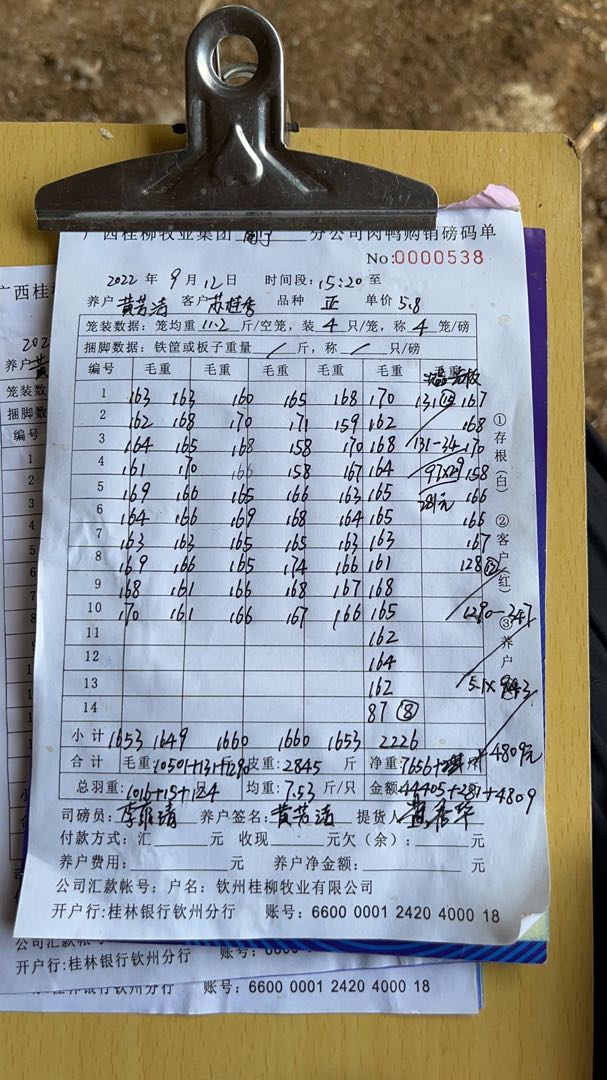 广西桂柳牧业集团 南宁 分公司肉鸭购销磅码单
No:0000538
2022 年 9 月 12 日 时间段: 15:20 至
养户 黄芳洁 客户 苏桂秀 品种 正 单价 5.8
笼装数据: 笼均重 11.2 斤/空笼, 装 4 只/笼, 称 4 笼/磅
捆脚数据: 铁筐或板子重量 / 斤, 称 / 只/磅
编号 毛重 毛重 毛重 毛重 毛重 毛重
1 163 163 160 165 168 170 131⑮ 167
2 162 168 170 171 159 162 168
3 164 165 168 158 170 168 131-34 170
4 161 170 166 158 167 164 97×2.9 158
5 169 166 165 166 163 165 281元 166
6 164 166 169 168 164 165 166
7 163 163 165 165 163 163 167
8 169 166 165 174 166 161 128
9 168 161 166 168 167 168
10 170 161 166 167 166 165 1290-347
11 162
12 164
13 162 5.1×943
14 87⑧
小计 1653 1649 1660 1660 1653 2226
合计 毛重:10501+131+1290 皮重:2845 斤 净重:7656+ +4809元
总羽重:1016+15+124 均重:7.53 斤/只 金额44405+281+4809
司磅员: 养户签名: 黄芳洁 提货人
付款方式: 汇 元 收现 元欠(余): 元
养户费用: 元 养户净金额: 元
公司汇款帐号: 户名: 钦州桂柳牧业有限公司
开户行:桂林银行钦州分行 账号: 6600 0001 2420 4000 18
①存根(白) ②客户(红) ③养户
广西桂
202
养户 黄
笼装数
捆脚数
编号
1
2
3
4
公司汇款帐
开户行:桂林银行钦州分行 账号: 6600 0001 2420 4000 18